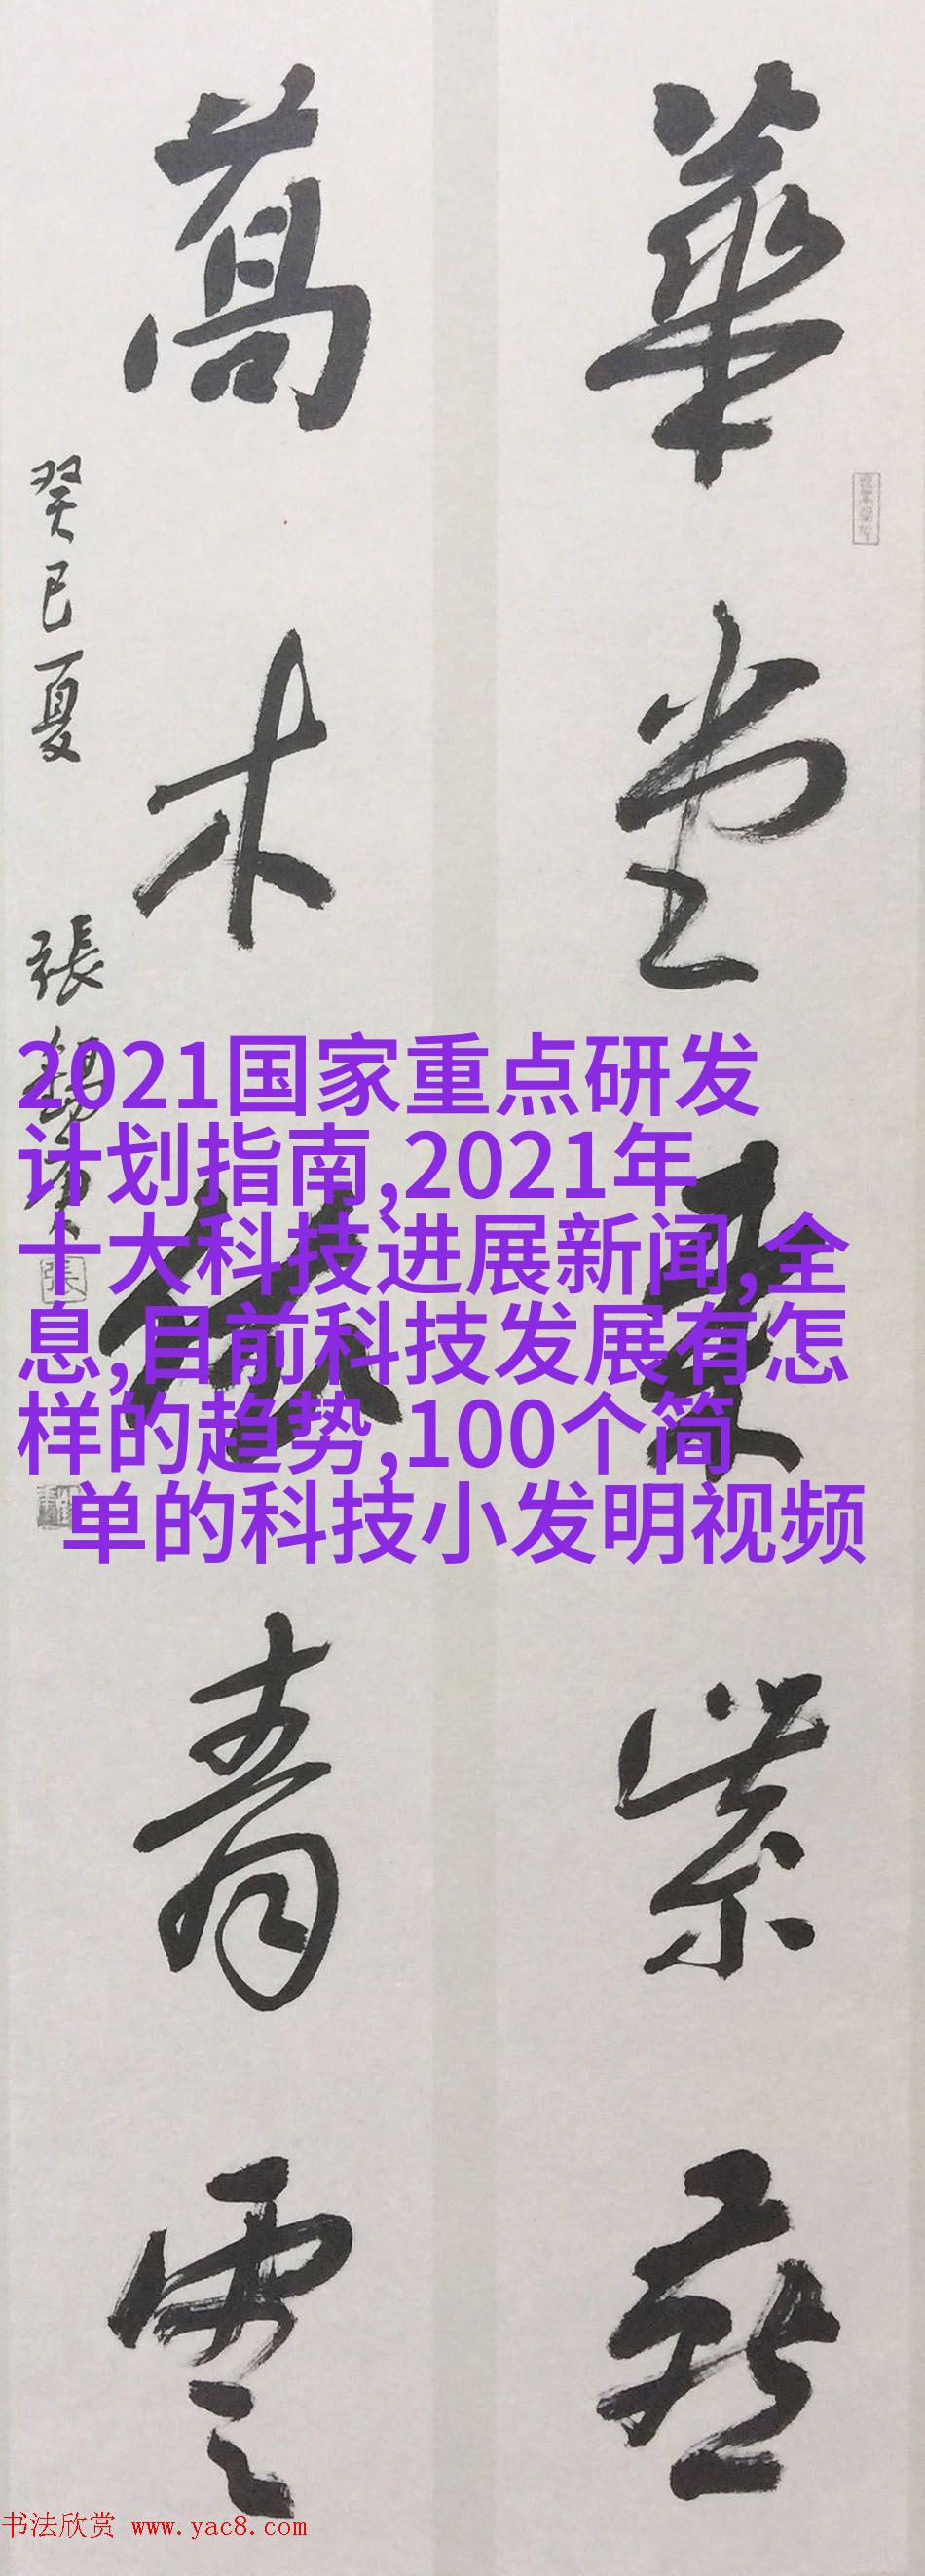 華堂紫燕
萬木青雲
癸巳夏 張
2021国家重点研发
计划指南,2021年
十大科技进展新闻,全
息,目前科技发展有怎
样的趋势,100个简
单的科技小发明视频
书法欣赏 www.yac8.com